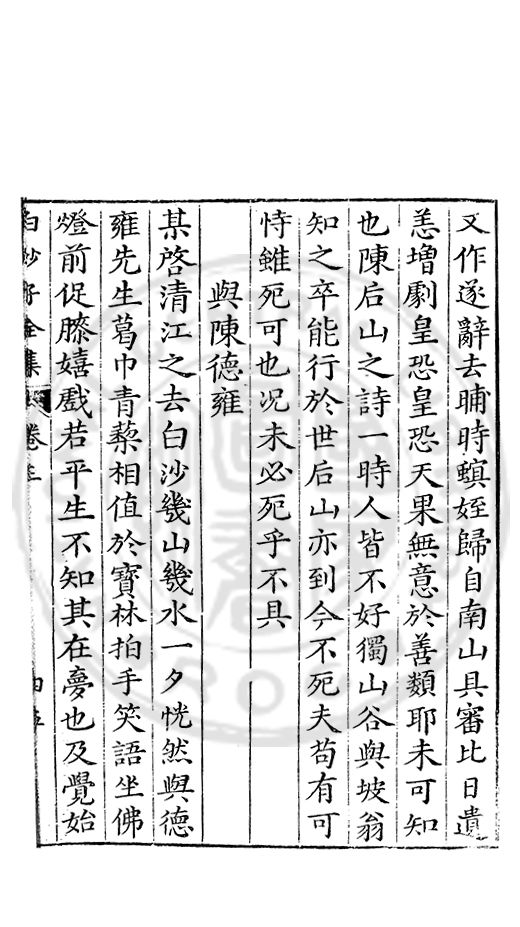 又作遂辭去晡時蟥姪歸自南山具審比日遺
恙增劇皇恐皇恐天果無意於善類耶未可知
也陳后山之詩一時人皆不好獨山谷與坡翁
知之卒能行於世后山亦到今不死夫苟有可
恃雖死可也况未必死乎不具
與陳德雍
某啓清江之去白沙幾山幾水一夕恍然與德
雍先生葛巾青藜相值於寶林拍手笑語坐佛
燈前促膝嬉戲若平生不知其在夢也及覺始
白沙子全集 卷三